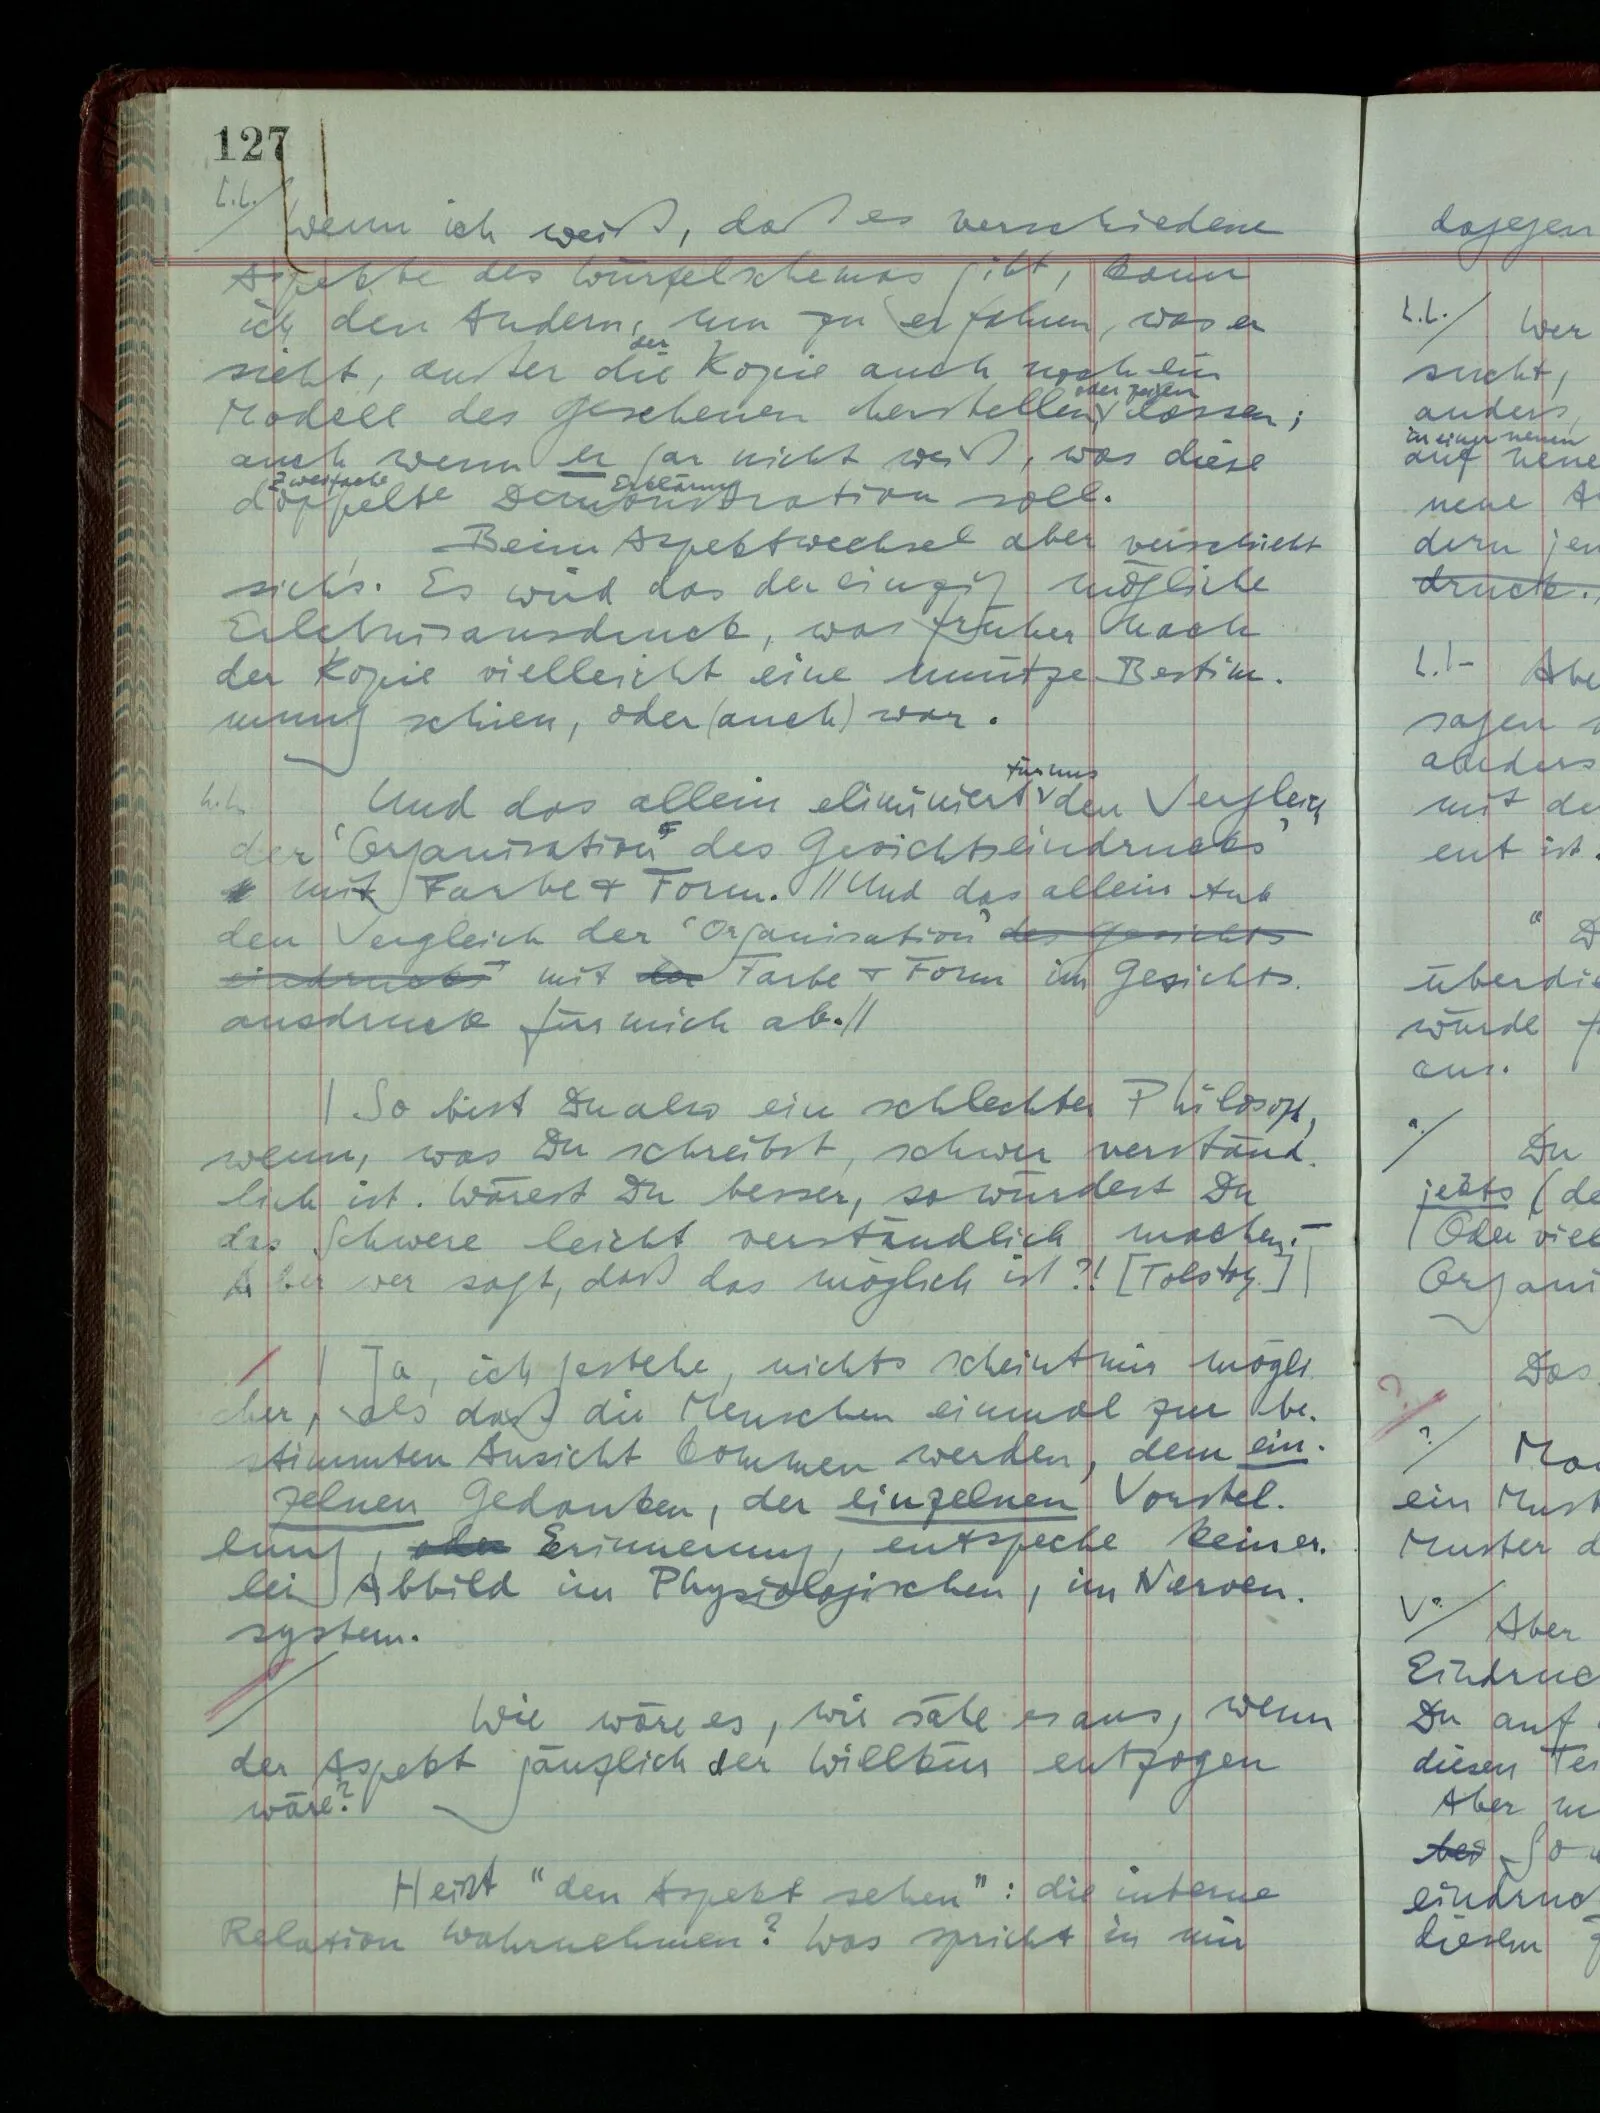 127
L.L. / Wenn ich weiß, daß es verschiedene
Aspekte des Würfelschemas gibt, kann
ich den Andern, um zu erfahren, was er
der
sieht, außer die Kopie auch noch ein
oder zeigen
Modell des Gesehenen herstellen lassen;
auch wenn er gar nicht weiß, was diese
zweifache Erklärung
doppelte Demonstration soll.
Beim Aspektwechsel aber verschiebt
sich's. Es wird das der einzig mögliche
Erlebnisausdruck, was früher nach
der Kopie vielleicht eine unnütze Bestim-
mung schien, oder (auch) war.
für uns
L.L. Und das allein eliminiert den Vergleich
der 'Organisation' des Gesichtseindrucks'
mit Farbe & Form. // Und das allein tut
den Vergleich der 'Organisation' des Gesichts
eindrucks' mit der Farbe & Form im Gesichts-
ausdruck für mich ab. //
| So bist Du also ein schlechter Philosoph,
wenn, was Du schreibst, schwer verständ-
lich ist. Wärest Du besser, so würdest Du
das Schwere leicht verständlich machen. –
Aber wer sagt, daß das möglich ist?! [Tolstoy.] |
/ | Ja, ich gestehe, nichts scheint mir mögli-
cher, als daß die Menschen einmal zur be-
stimmten Ansicht kommen werden, dem ein-
zelnen Gedanken, der einzelnen Vorstel-
lung, oder Erinnerung, entspreche keiner-
lei Abbild im Physiologischen, im Nerven-
system.
/ Wie wäre es, wie sähe es aus, wenn
der Aspekt gänzlich der Willkür entzogen
wäre?
Heißt "den Aspekt sehen": die interne
Relation wahrnehmen? Was spricht in mir
dagegen
L.L. / Wer
sucht,
anders,
in einer neuen
auf neue
neue
dern
druck.
L.L. Abe
sagen
anders
mit de
ent ist.
" D
überdi
würde
aus.
/ Du
jetzt (de
| Oder viel
Organi
Das
?
? / Man
ein Must
Muster d
V ? / Aber
Eindruc
Du auf
diesen Tei
Aber
bei So
eindruc
diesem